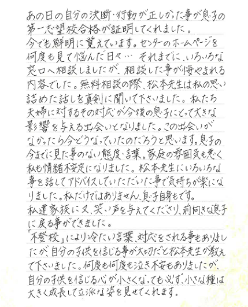 あの日の自分の決断・行動が正しかった事が息子の
第一志望校合格が証明してくれました。
今でも鮮明に覚えています。センターのホームページを
何度も見て悩んだ日々… それまでに、いろいろな
窓口へ相談しましたが、相談した事が悔やまれる
内容でした。無料相談の際、松本先生は私の思い
詰めた話しを真剣に聞いて下さいました。私たち
夫婦に対するその対応が今後の息子にとって大きな
影響を与える出会いとなりました。この出会いが
なかったら今どうなっていたのだろうと思います。息子の
今までに見た事のない態度・言葉、家庭の雰囲気も悪く
私も情緒不安定になりました。松本先生にいろいろな
事を話してアドバイスしていただいた事で気持ちが楽にな
りました。私だけではありません。息子自身もです。
私達家族に又、笑い声を与えてくださり、前向きな息子
に戻る事ができました。
不登校により冷たい言葉、対応をされる事もありまし
たが、自分の子供を信じる事が大切だと松本先生が教え
て下さいました。何度も何度も泣き不安もありましたが、
自分の子供を信じる心が小さくなっても必ず、小さな種は
大きく成長して立派な姿を見せてくれます。